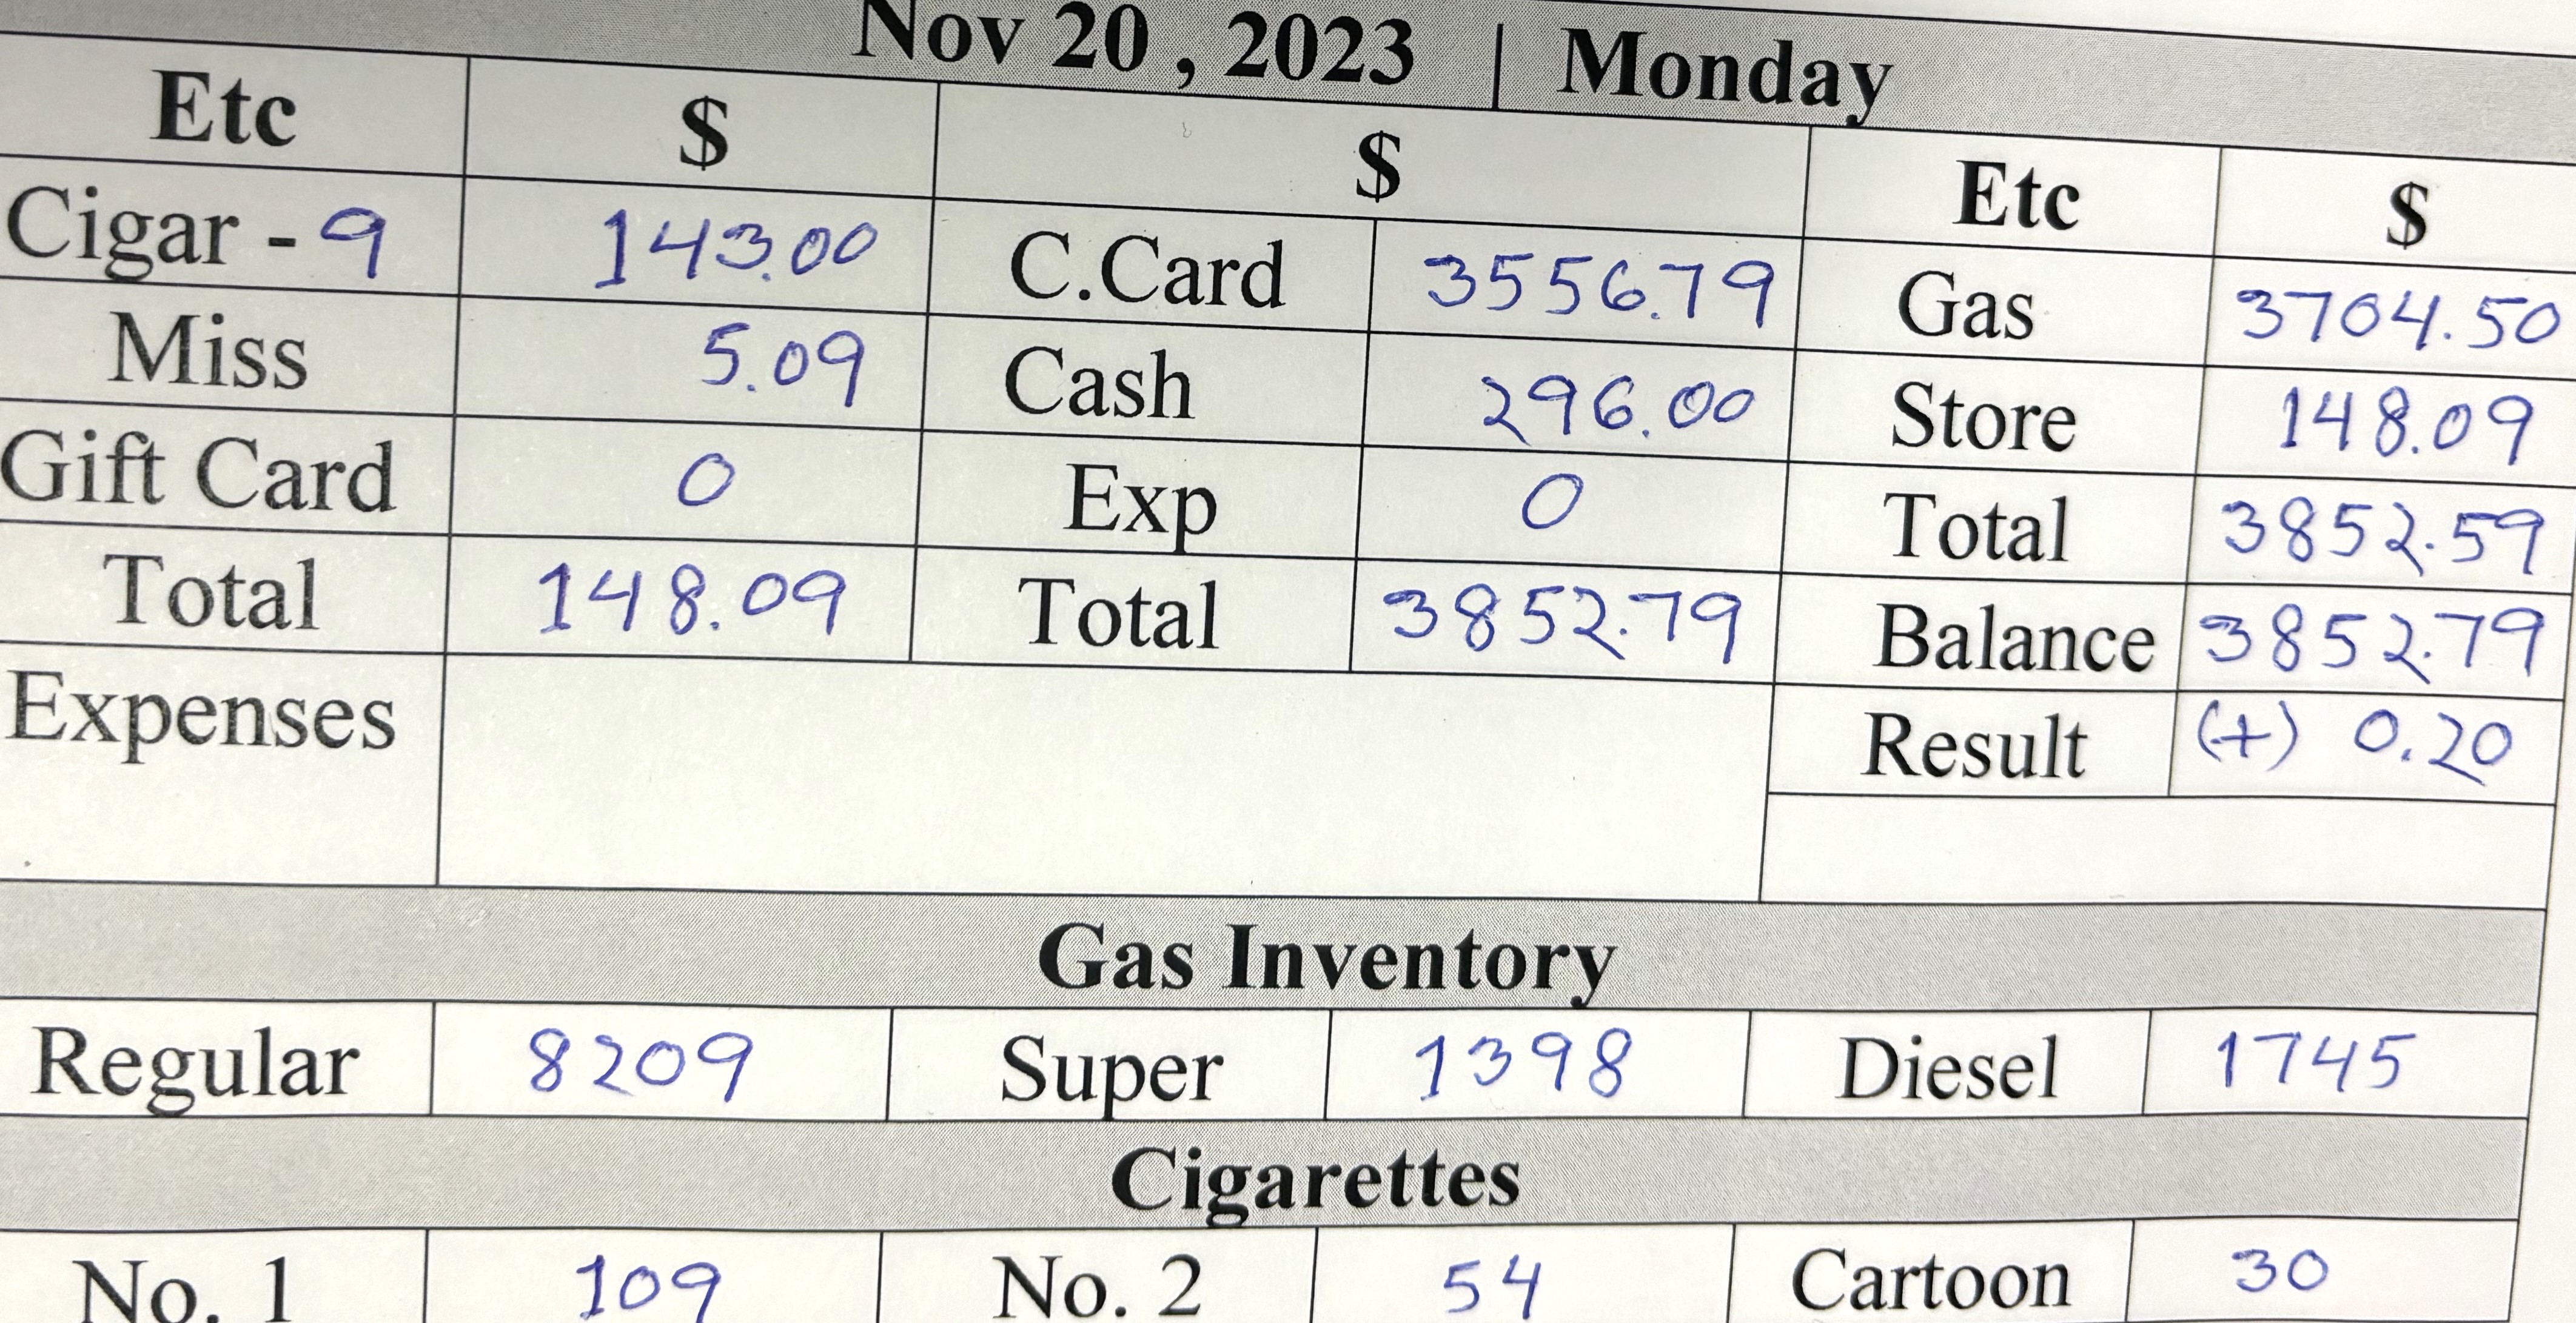 Nov 20 , 2023 | Monday
Etc $ $ Etc $
Cigar - 9 143.00 C.Card 3556.79 Gas 3704.50
Miss 5.09 Cash 296.00 Store 148.09
Gift Card 0 Exp 0 Total 3852.59
Total 148.09 Total 3852.79 Balance 3852.79
Expenses Result (+) 0.20
Gas Inventory
Regular 8209 Super 1398 Diesel 1745
Cigarettes
No. 1 109 No. 2 54 Cartoon 30